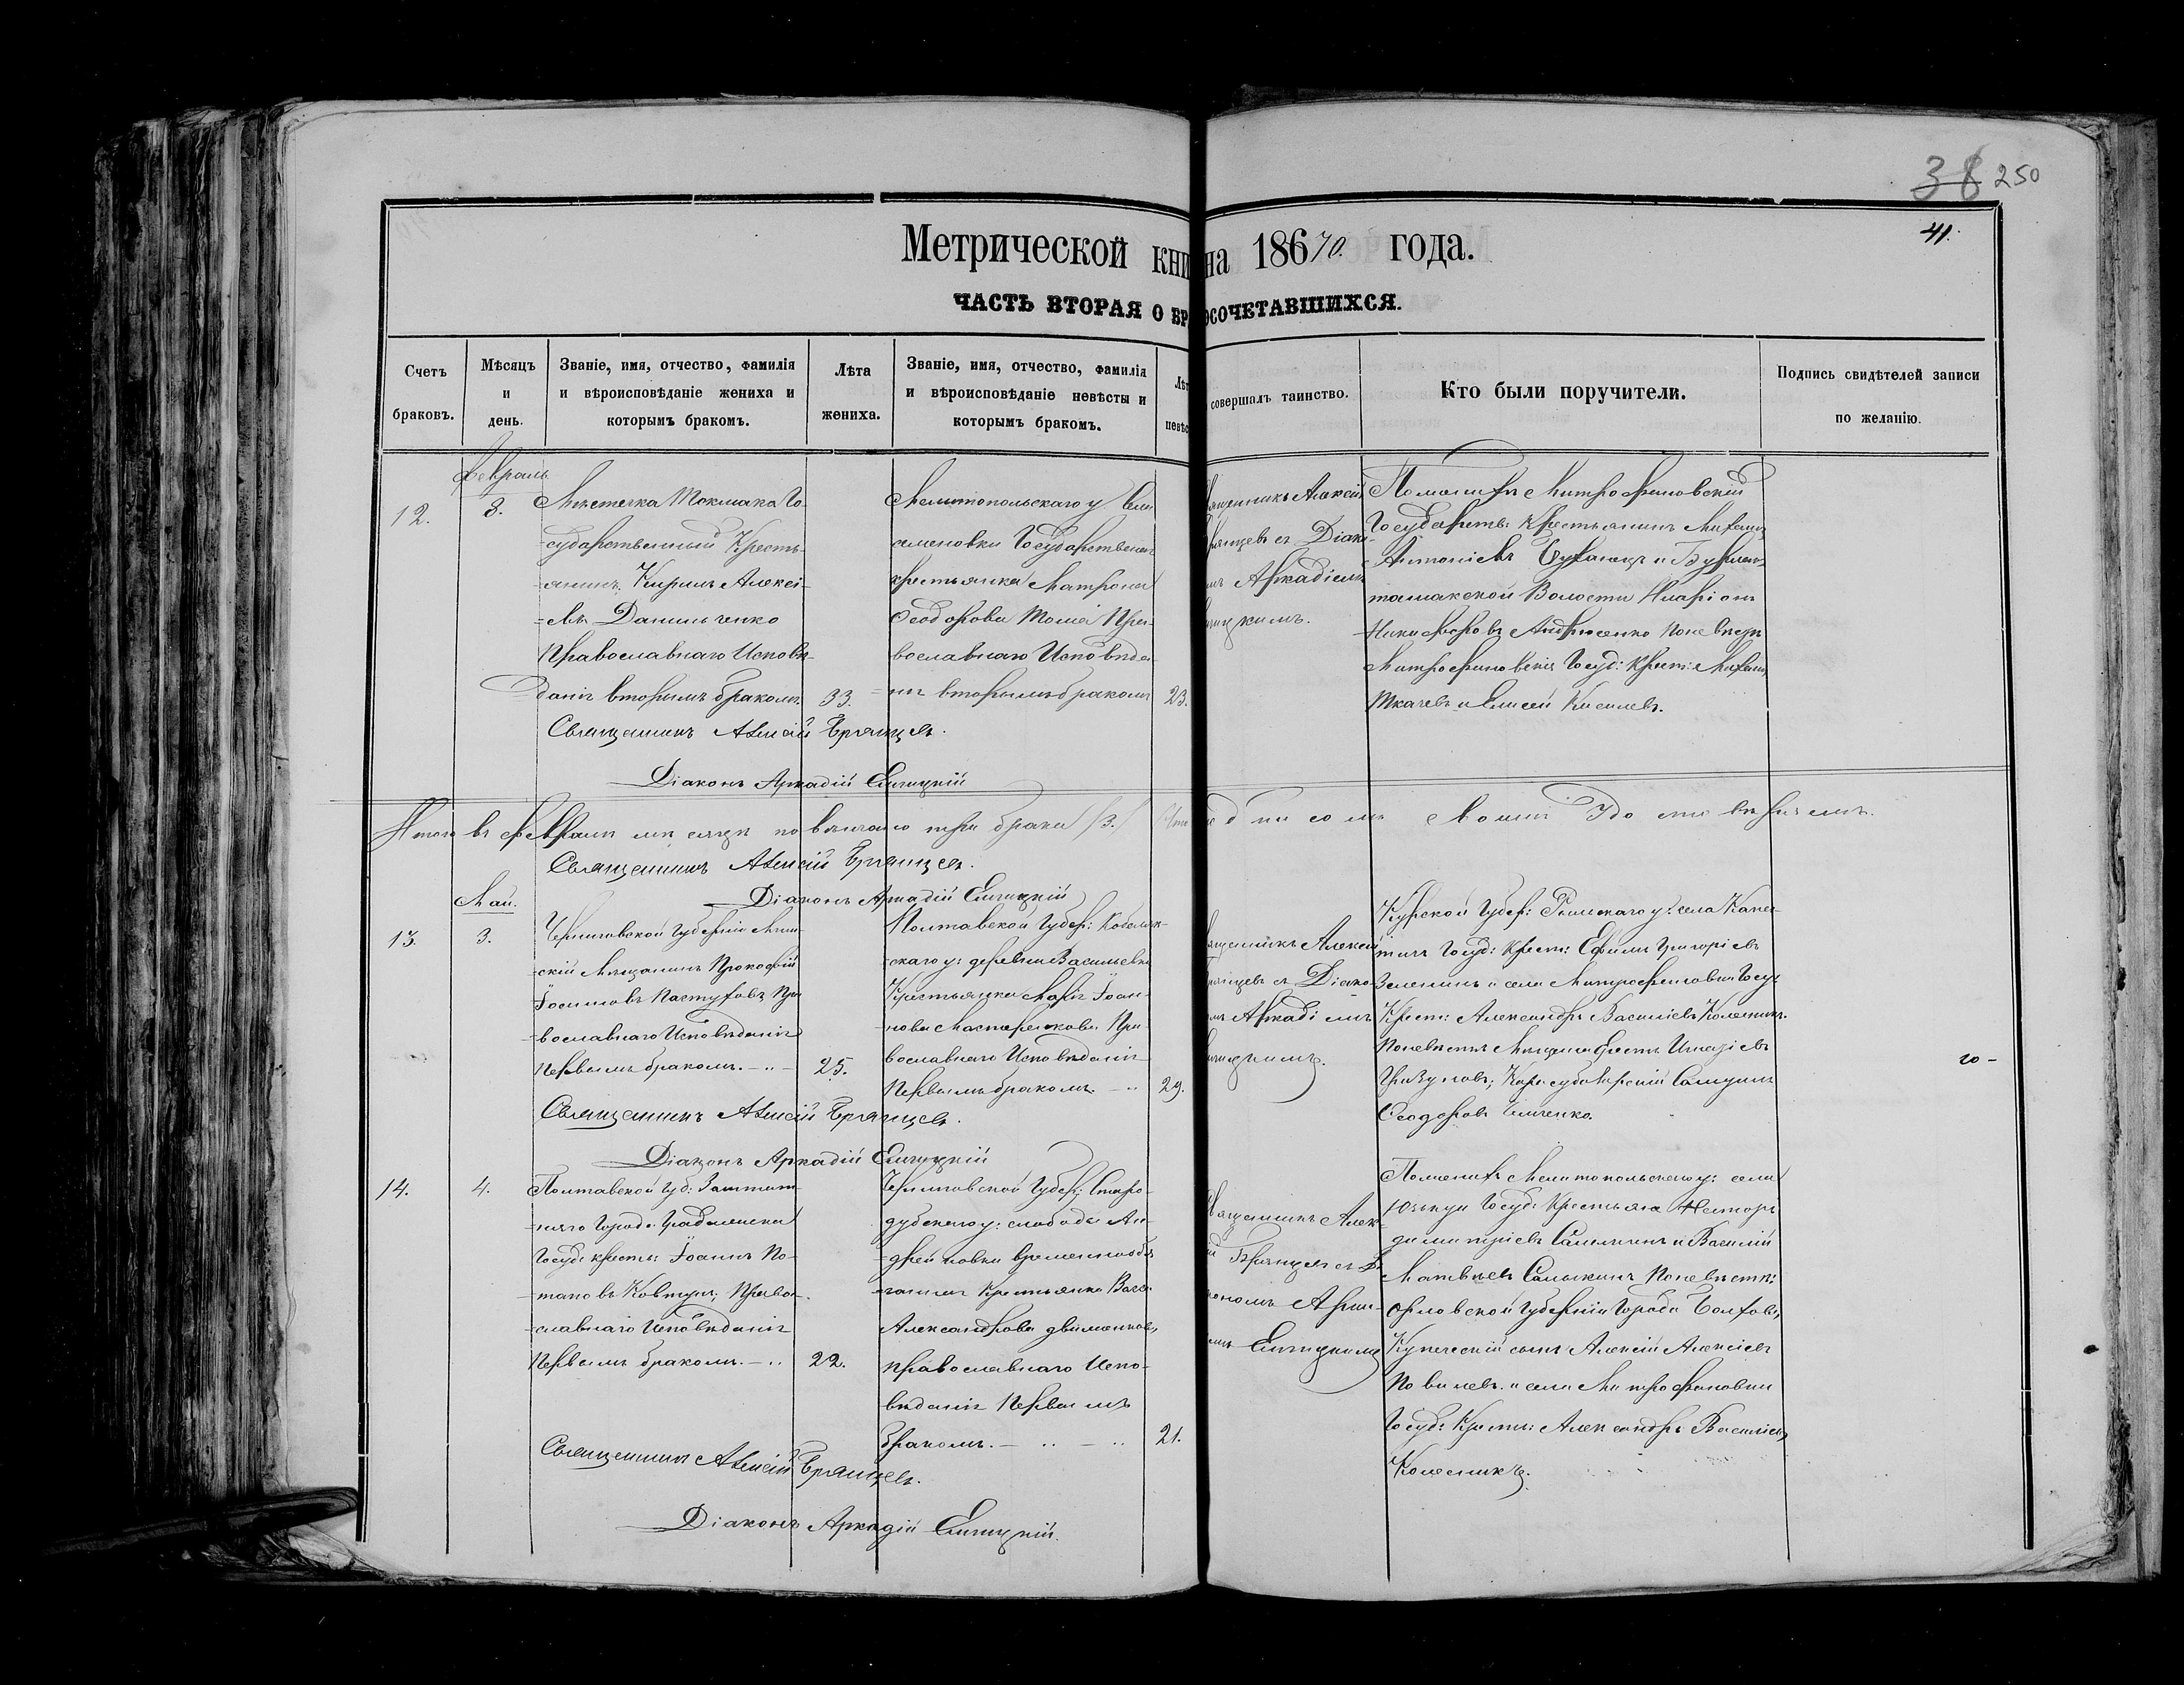 38 250
41.
Метрической кни на 18670. года.
ЧАСТЬ ВТОРАЯ О БР ОСОЧЕТАВШИХСЯ.
Счетъ браковъ.
Мѣсяцъ и день.
Званіе, имя, отчество, фамилія
и вѣроисповѣданіе жениха и
которымъ бракомъ.
Лѣта жениха.
Званіе, имя, отчество, фамилія
и вѣроисповѣданіе невѣсты и
которымъ бракомъ.
Лѣт
невѣс
совершалъ таинство.
Кто были поручители.
Подпись свидѣтелей записи
по желанію.
Февраль
12.
8.
Мѣстечка Токмака Го-
сударственный Кресть-
-янинъ, Кирилъ Алексі-
-евъ Данильченко
Православнаго Исповѣ-
даніе вторымъ бракомъ.
33.
Мелитопольскаго у
Государствен
крестьянка Матрона
Феодорова Пра-
вославнаго Исповѣда-
-ніе вторымъ бракомъ
23.
ященникъ Алексій
рянцевъ съ Діако-
мъ Аркадіемъ
ицкимъ.
По Митрофановскій
Государств: Крестьянинъ Михаилъ
Антоніевъ и
Волости Иларіонъ
Никифоровъ Андрющенко По невѣстѣ
Митрофановскіе Госуд: Крест: Михаилъ
Ткачевъ и Елисей Киселевъ.
Священникъ Алексій Брянцевъ.
Діаконъ Аркадій Елицкій
Итого въ Февралѣ мѣсяцѣ повѣнчано три брака /3./ Что дписомъ своимъ Удостовѣряемъ.
Священникъ Алексій Брянцевъ.
Діаконъ Аркадій Елицкій
Май.
13.
3.
Черниговской Губерніи
-скій Мѣщанинъ Прокофій
Іосифовъ Пастуховъ Пра
-вославнаго Исповѣданія
Первымъ бракомъ. - .. -
25.
Полтавской Губер: Кобеляк-
-скаго у: деревни Васильевки
Крестьянка Марія Іоан-
-нова Пра-
вославнаго Исповѣданія
Первымъ бракомъ. - ..
29.
ященникъ Алексій
рянцевъ съ Діако-
мъ Аркадіемъ
ицкимъ.
Курской Губер: Рыльскаго у: села
Госуд: Крест: Ефимъ Григоріевъ
Зеленинъ и села Митрофановки Госуд
Крест: Александръ Васильевъ Колесникъ.
По невѣстѣ
Феодоровъ
го -
Священникъ Алексій Брянцевъ.
Діаконъ Аркадій Елицкій
14.
4.
Полтавской Губ: Заштат-
-наго Города Градижска
Госуд: крест: Іоаннъ По-
-таповъ Ковтунъ, Право-
-славнаго Исповѣданія
Первымъ бракомъ. - ..
22.
Черниговской Губер: Старо-
дубскаго у: слободы Ан-
-дрейковки временнообя
-занная Крестьянка
Александрова
православнаго Испо-
вѣданія Первымъ
бракомъ. - .. - ..
21.
вященникъ Алек-
й Брянцевъ съ Ді
кономъ Арка-
емъ Елицкимъ
По Мелитопольскаго у: села
Госуд: Крестьяне Несторъ
Димитріевъ и Василій
Матвѣевъ По невѣстѣ:
Орловской Губерніи Города Болхова,
Купеческій сынъ Алексій Алексіевъ
и села Митрофановки
Госуд: Крест: Александръ Васильевъ
Колесникъ.
Священникъ Алексій Брянцевъ.
Діаконъ Аркадій Елицкій.